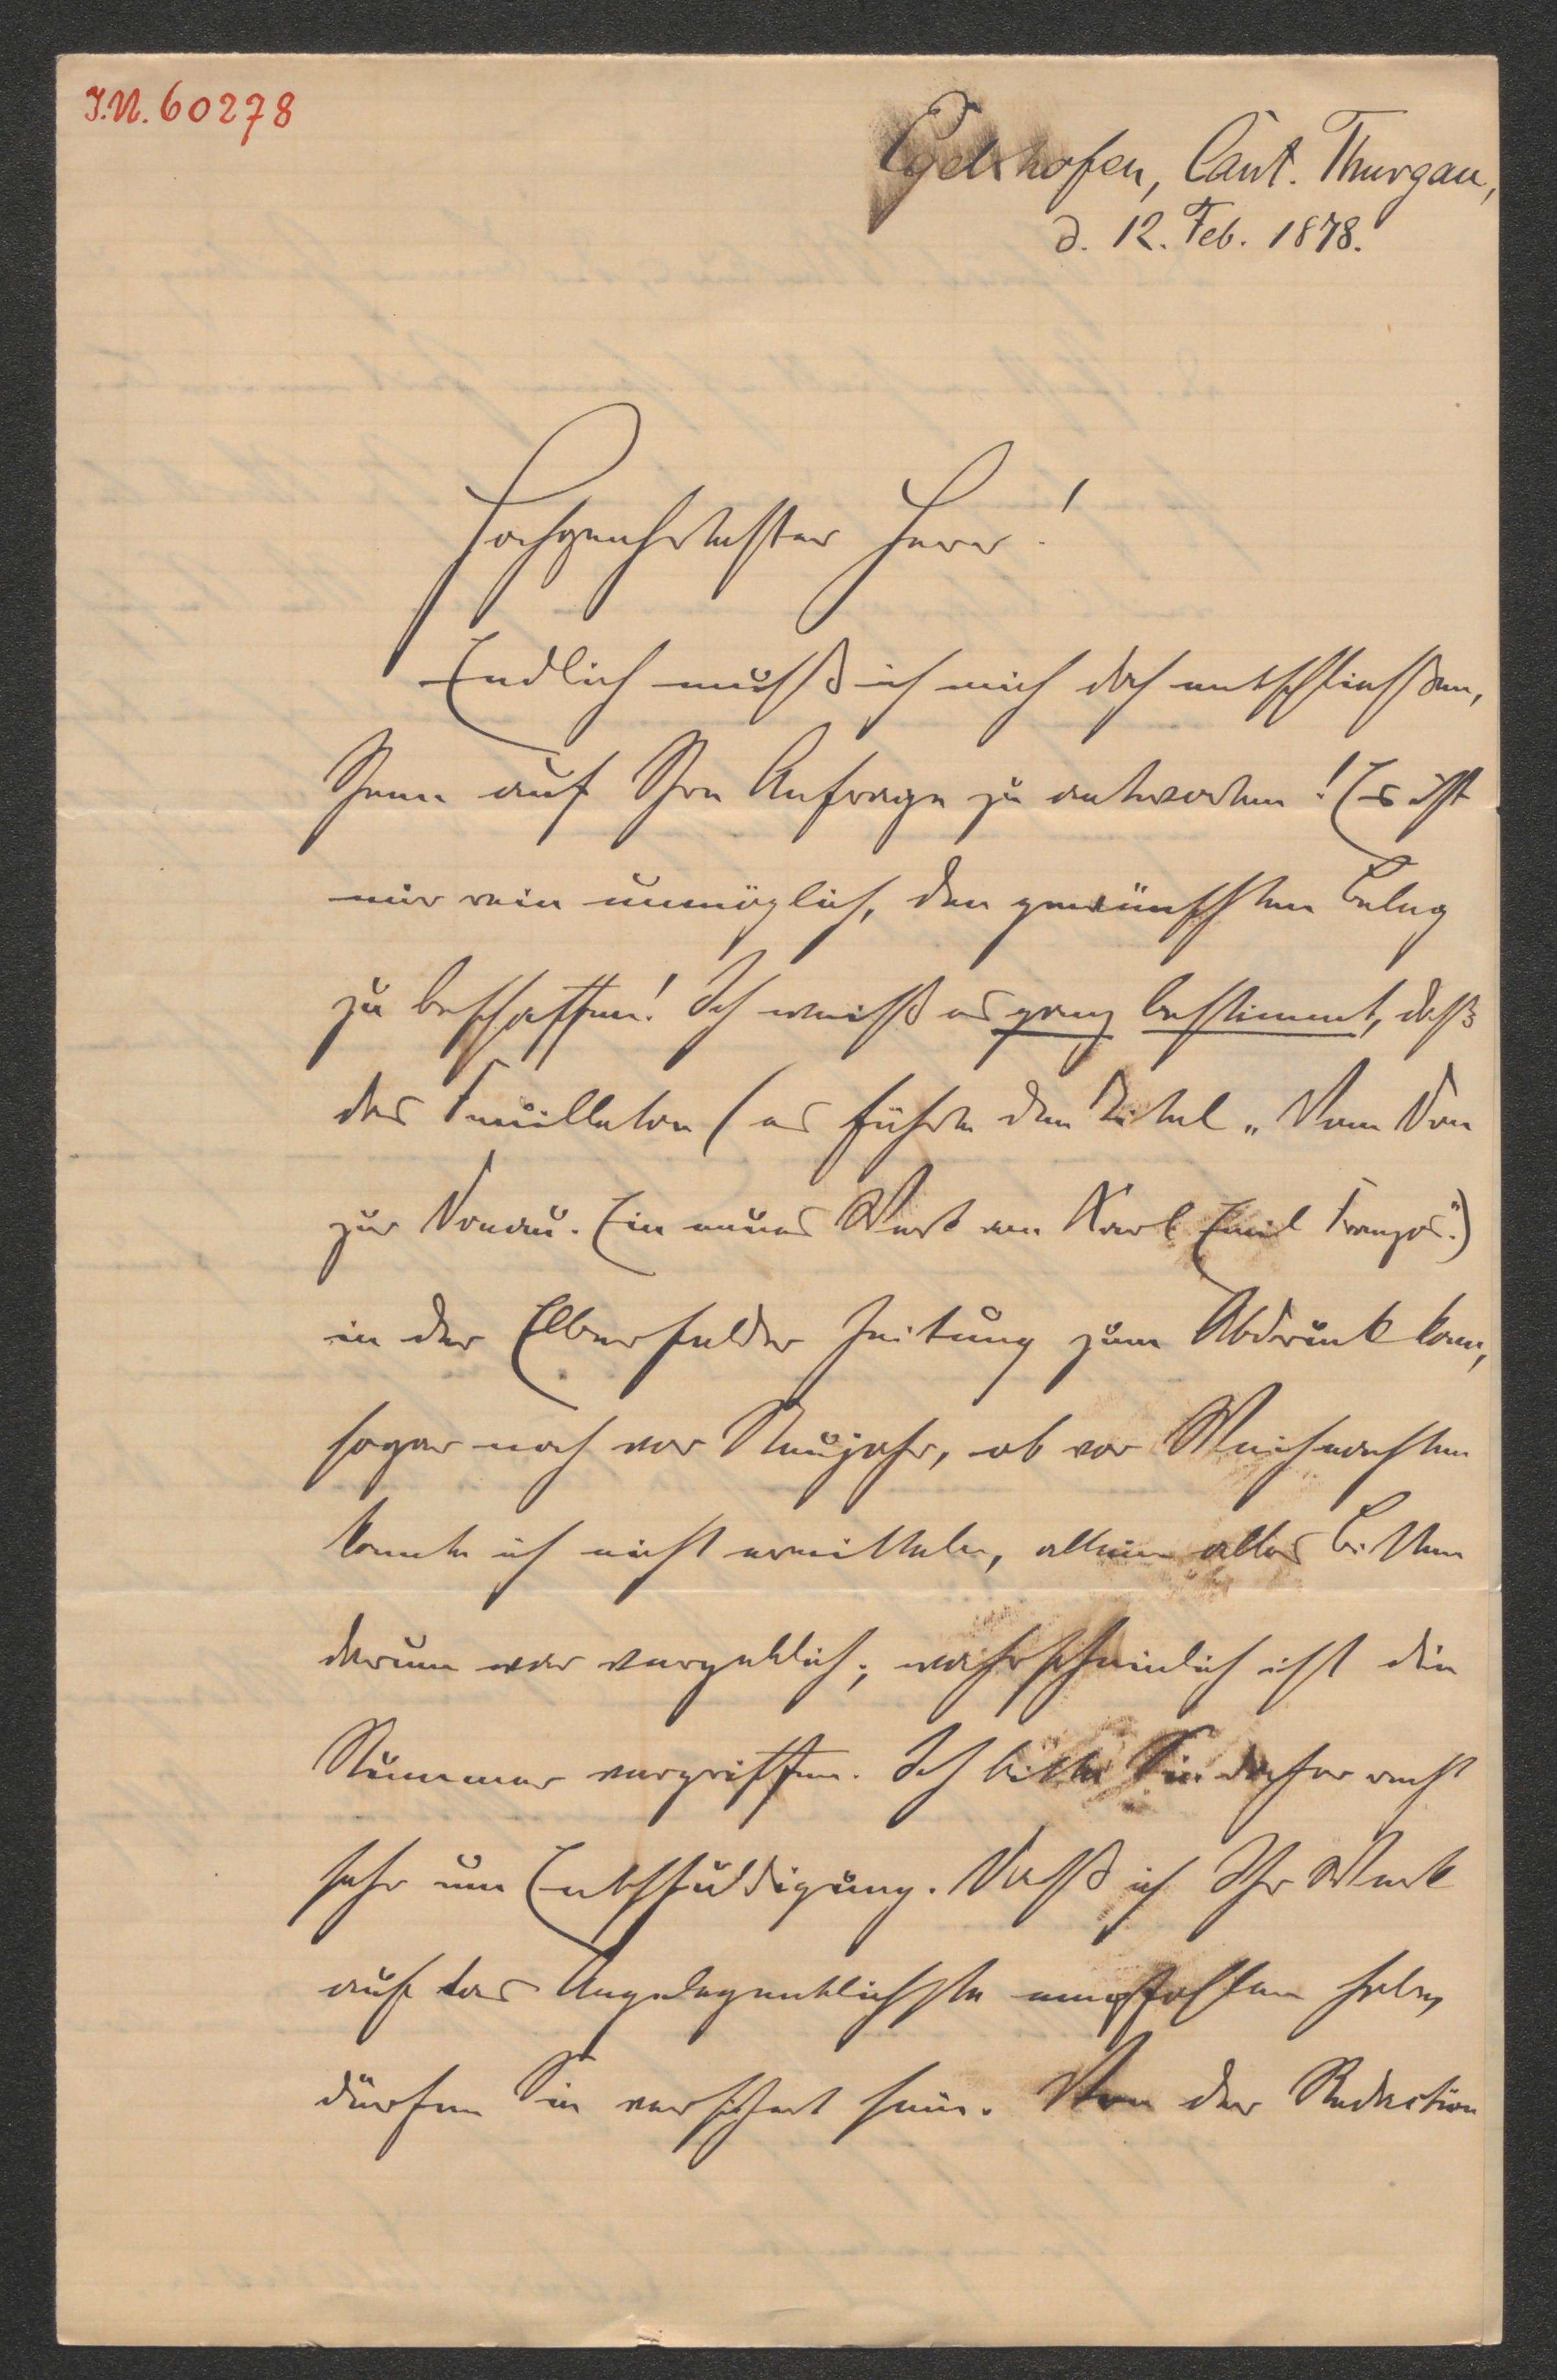 J.N. 60278
Egelshofen, Cant. Thurgau,
d. 12. Feb. 1878.
Hochgeehrtester Herr!
Endlich muß ich mich doch entschließen,
Ihnen auf Ihre Anfrage zu antworten! Es ist
mir rein unmöglich, den gewünschten Beleg
zu beschaffen! Ich weiß es ganz bestimmt, daß
das Feuilleton (es führte den Titel „Vom Don
zur Donau. Ein neues Werk von Karl Emil Franzos.")
in der Elberfelder Zeitung zum Abdruck kam,
sogar noch vor Neujahr, ob vor Weihnachten
konnte ich nicht ermitteln, allein alles Bitten
darum war vergeblich; wahrscheinlich ist die
Nummer vergriffen. Ich bitte Sie daher recht
sehr um Entschuldigung. Daß ich Ihr Werk
auf das Angelegentlichste empfohlen habe,
dürfen Sie versichert sein. Von der Redaction